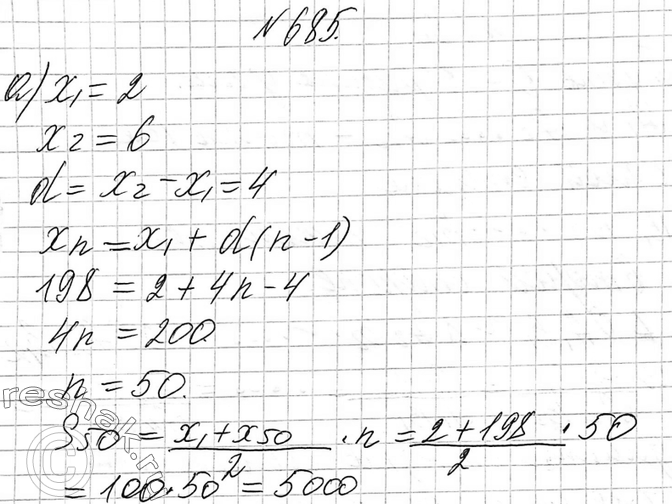 №685.
а) x₁ = 2
x₂ = 6
d = x₂ - x₁ = 4
xn = x₁ + d(n-1)
198 = 2 + 4n - 4
4n = 200.
n = 50.
S50 = (x₁ + x50)/2 · n = (2 + 198)/2 · 50
= 100 · 50 = 5000
reshak.ru